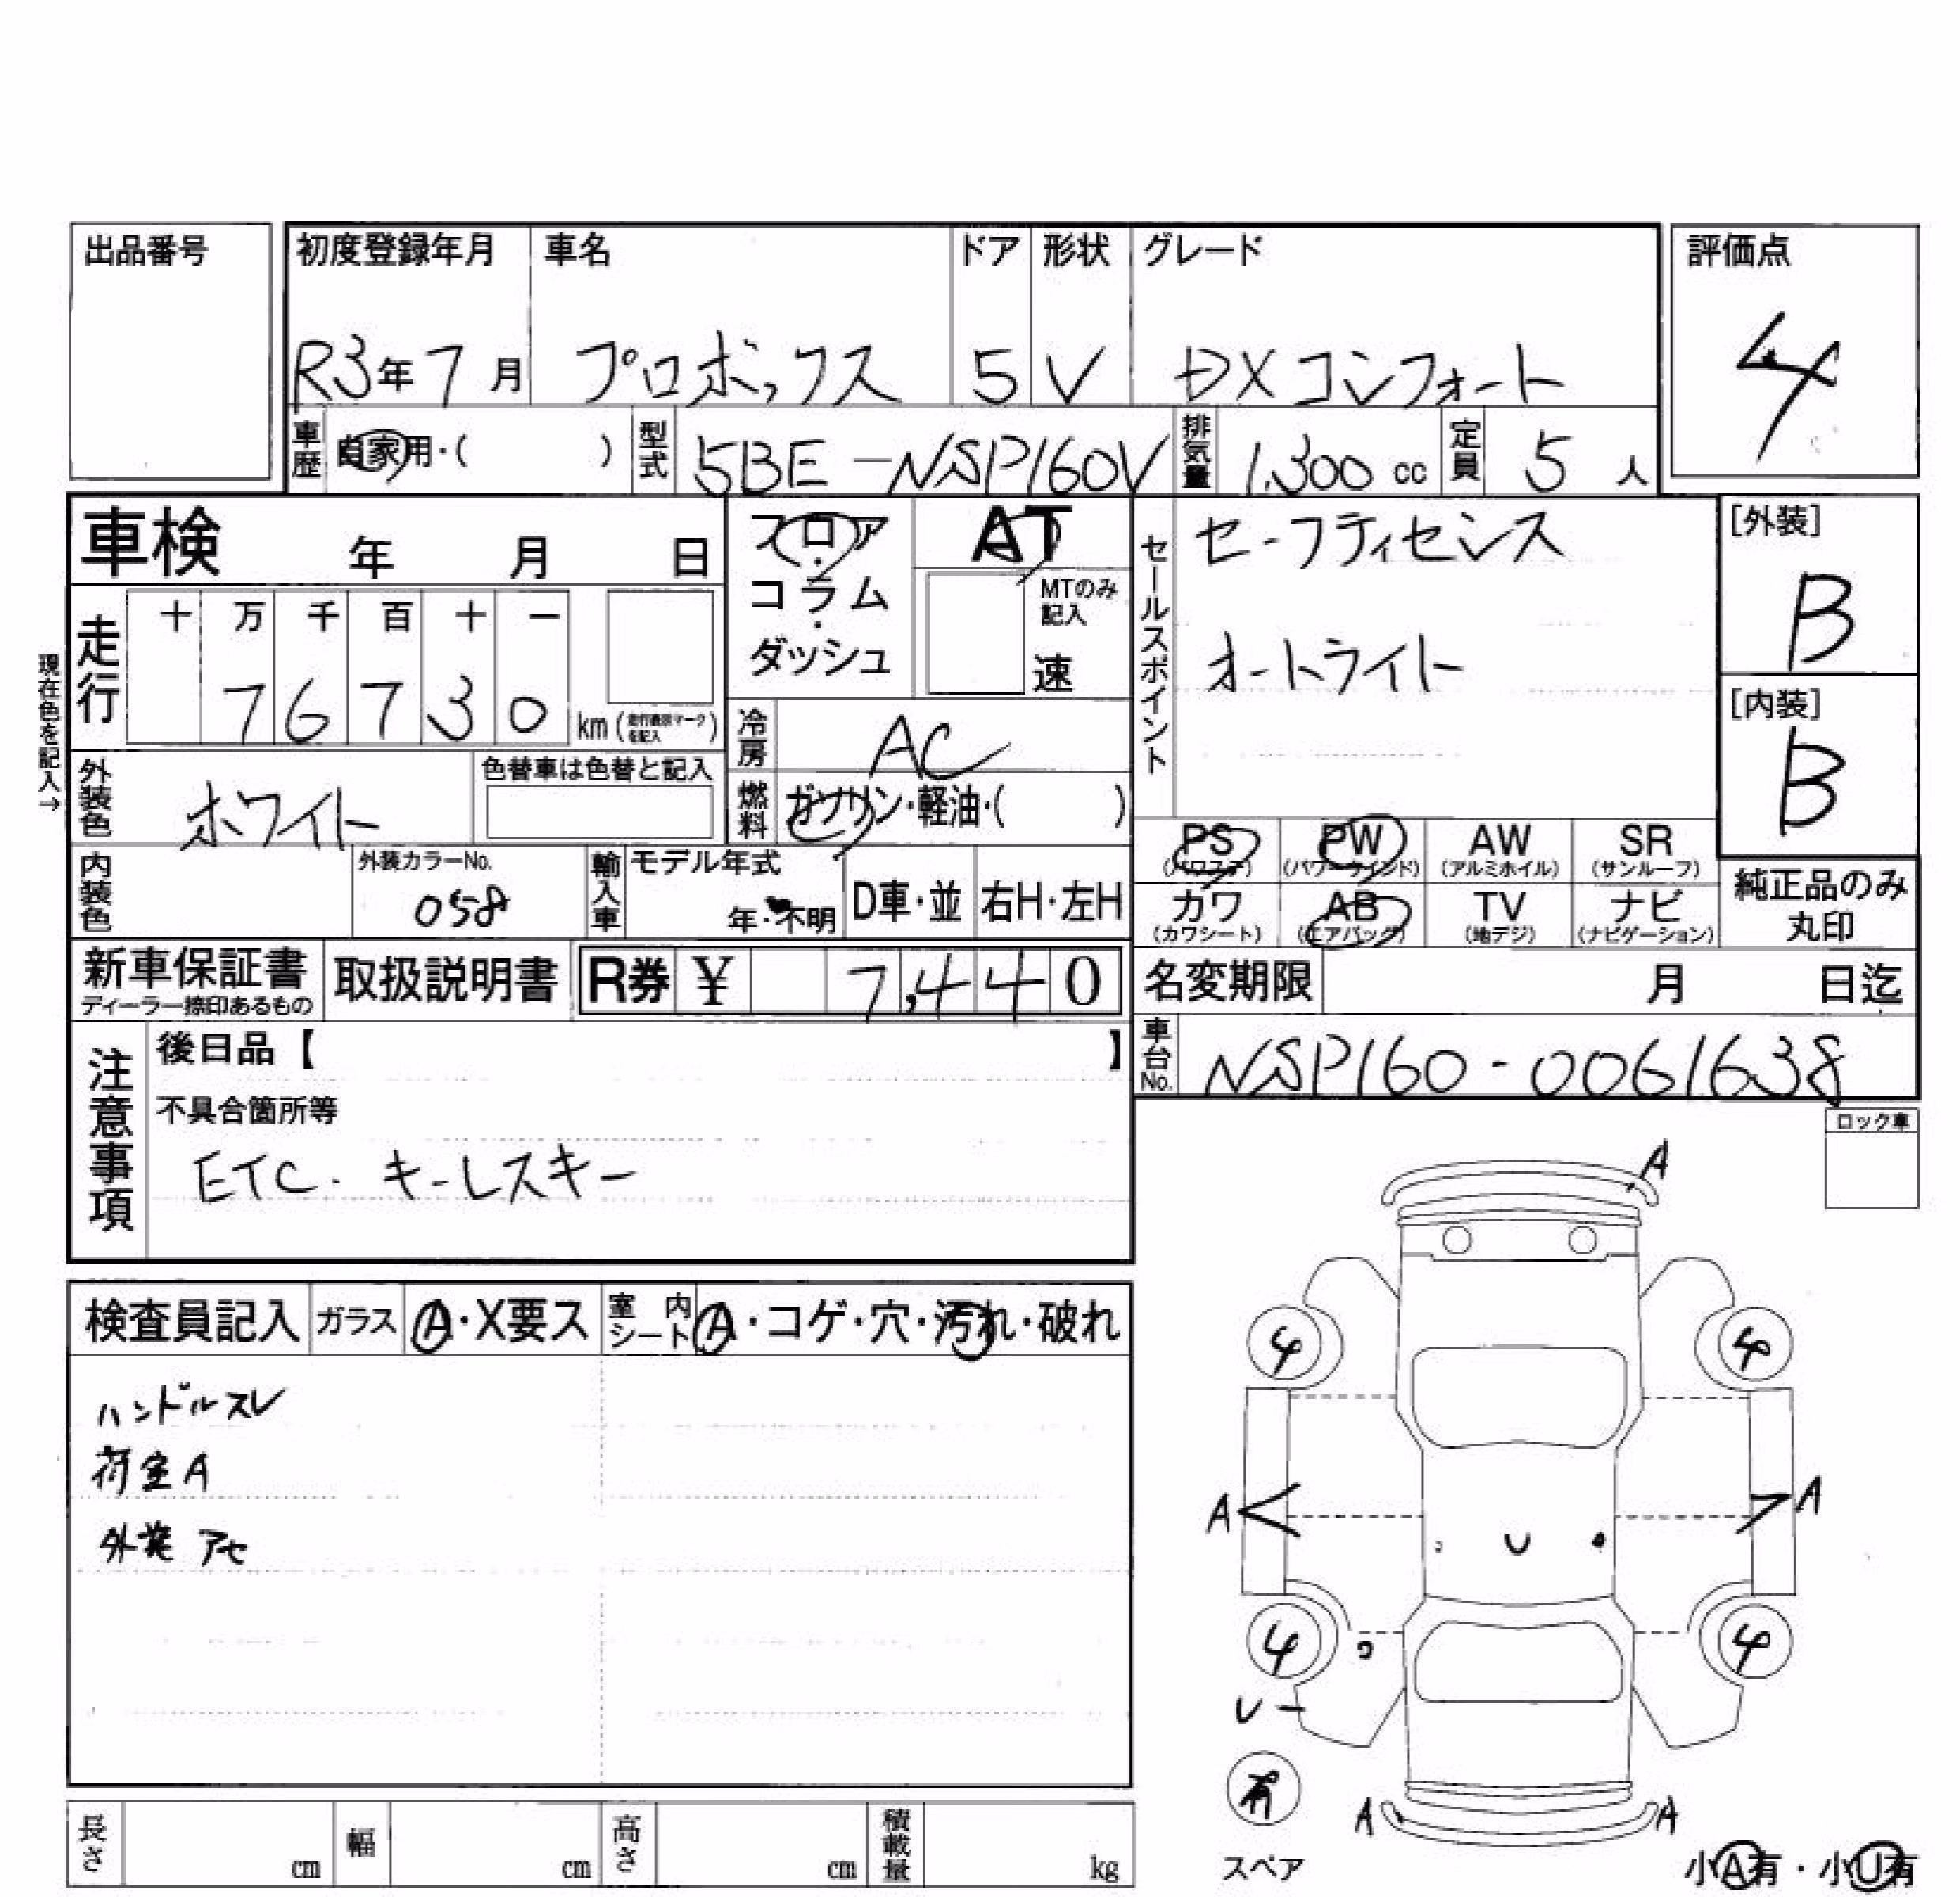 出品番号
初度登録年月 車名 ドア 形状 グレード 評価点
R3年7月 プロボックス 5 V DXコンフォート 4
車歴 自家用・( ) 型式 5BE-NSP160V 排気量 1,300 cc 定員 5 人
車検 年 月 日
フロア・コラム・ダッシュ
AT
MTのみ記入
速
セールスポイント
セーフティセンス
オートライト
[外装]
B
[内装]
B
現在色を記入→
走行 十 万 千 百 十 一
7 6 7 3 0 km (走行表示マークを記入)
冷房 AC
外装色 ホワイト 色替車は色替と記入
燃料 ガソリン・軽油・( )
PS (パワステ) PW (パワーウインド) AW (アルミホイル) SR (サンルーフ)
カワ (カワシート) AB (エアバッグ) TV (地デジ) ナビ (ナビゲーション)
純正品のみ丸印
内装色 外装カラーNo. 058 輸入車 モデル年式 年・不明 D車・並 右H・左H
新車保証書 ディーラー捺印あるもの 取扱説明書 R券 ¥ 7,440
名変期限 月 日迄
車台No. NSP160-0061638
注意事項
後日品【 】
不具合箇所等
ETC. キーレスキー
ロック車
検査員記入 ガラス A・X要ス 室内シート A・コゲ・穴・汚れ・破れ
ハンドルスレ
荷室A
外装 アセ
A
4 4
A A
U
4 4
U
有
スペア
A A
小A有・小U有
長さ cm 幅 cm 高さ cm 積載量 kg